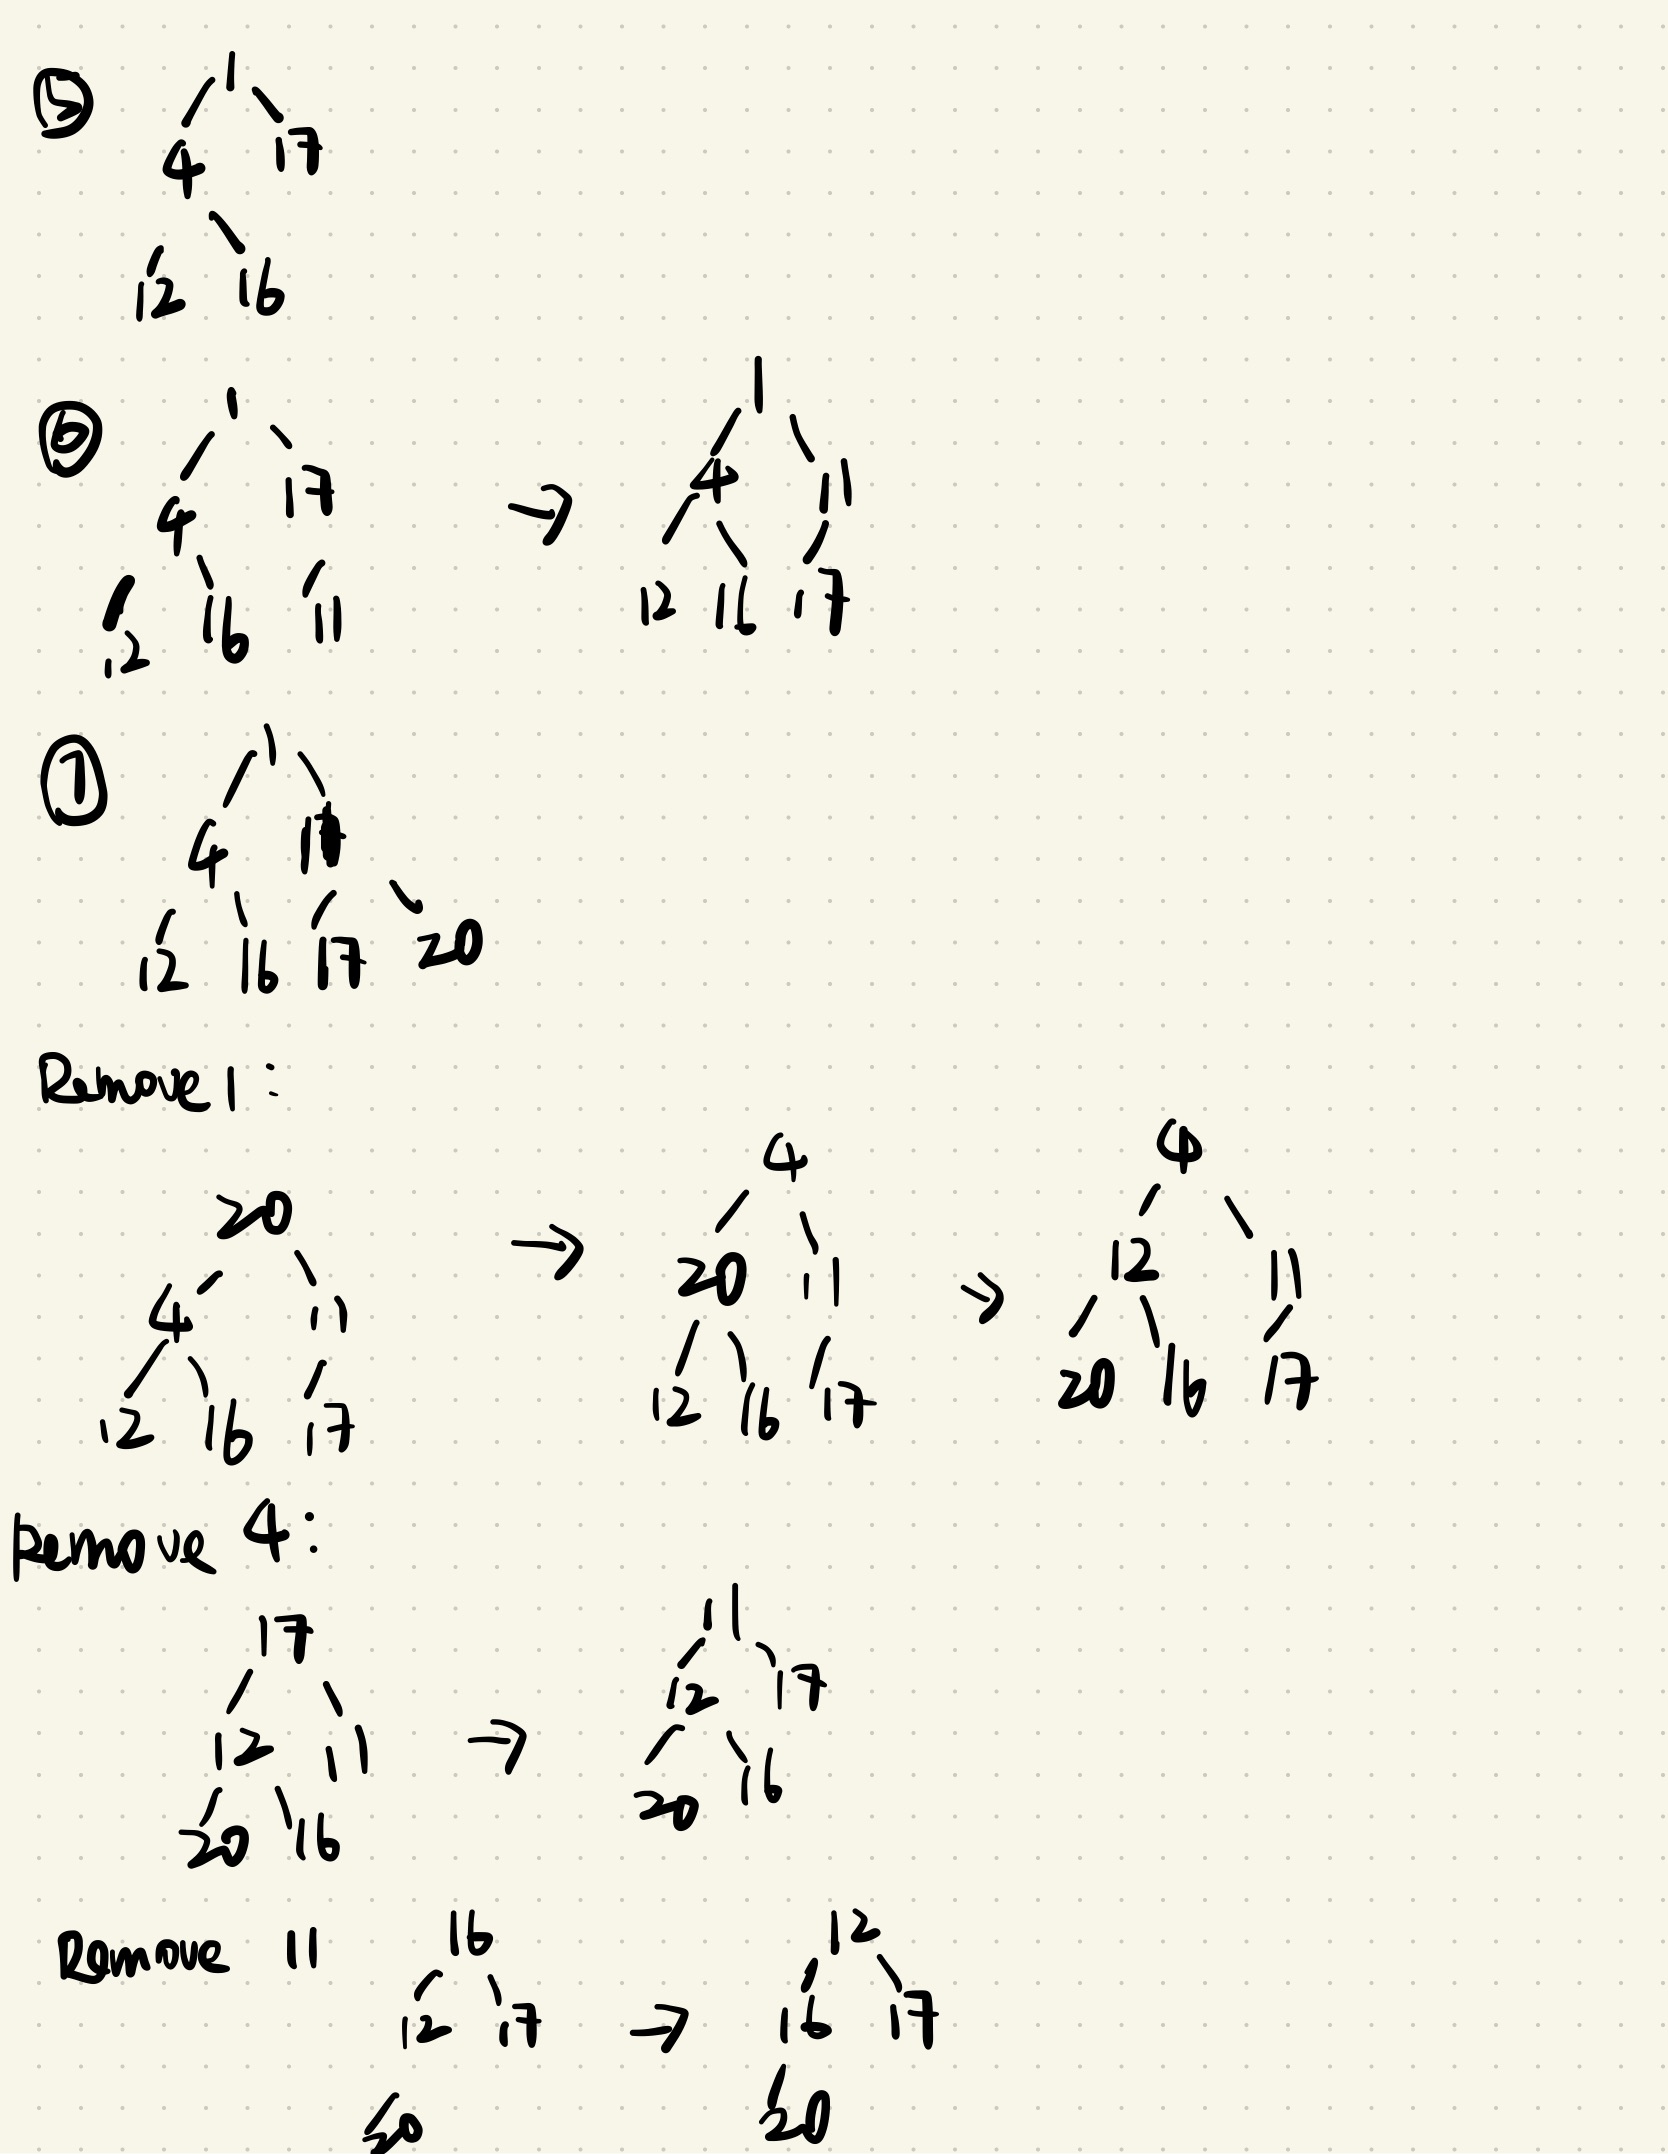 ⑤ 1
4 17
12 16
⑥ 1
4 17
12 16 11
→
1
4 11
12 16 17
⑦ 1
4 11
12 16 17 20
Remove 1:
20
4 11
12 16 17
→
4
20 11
12 16 17
→
4
12 11
20 16 17
Remove 4:
17
12 11
20 16
→
11
12 17
20 16
Remove 11
16
12 17
20
→
12
16 17
20